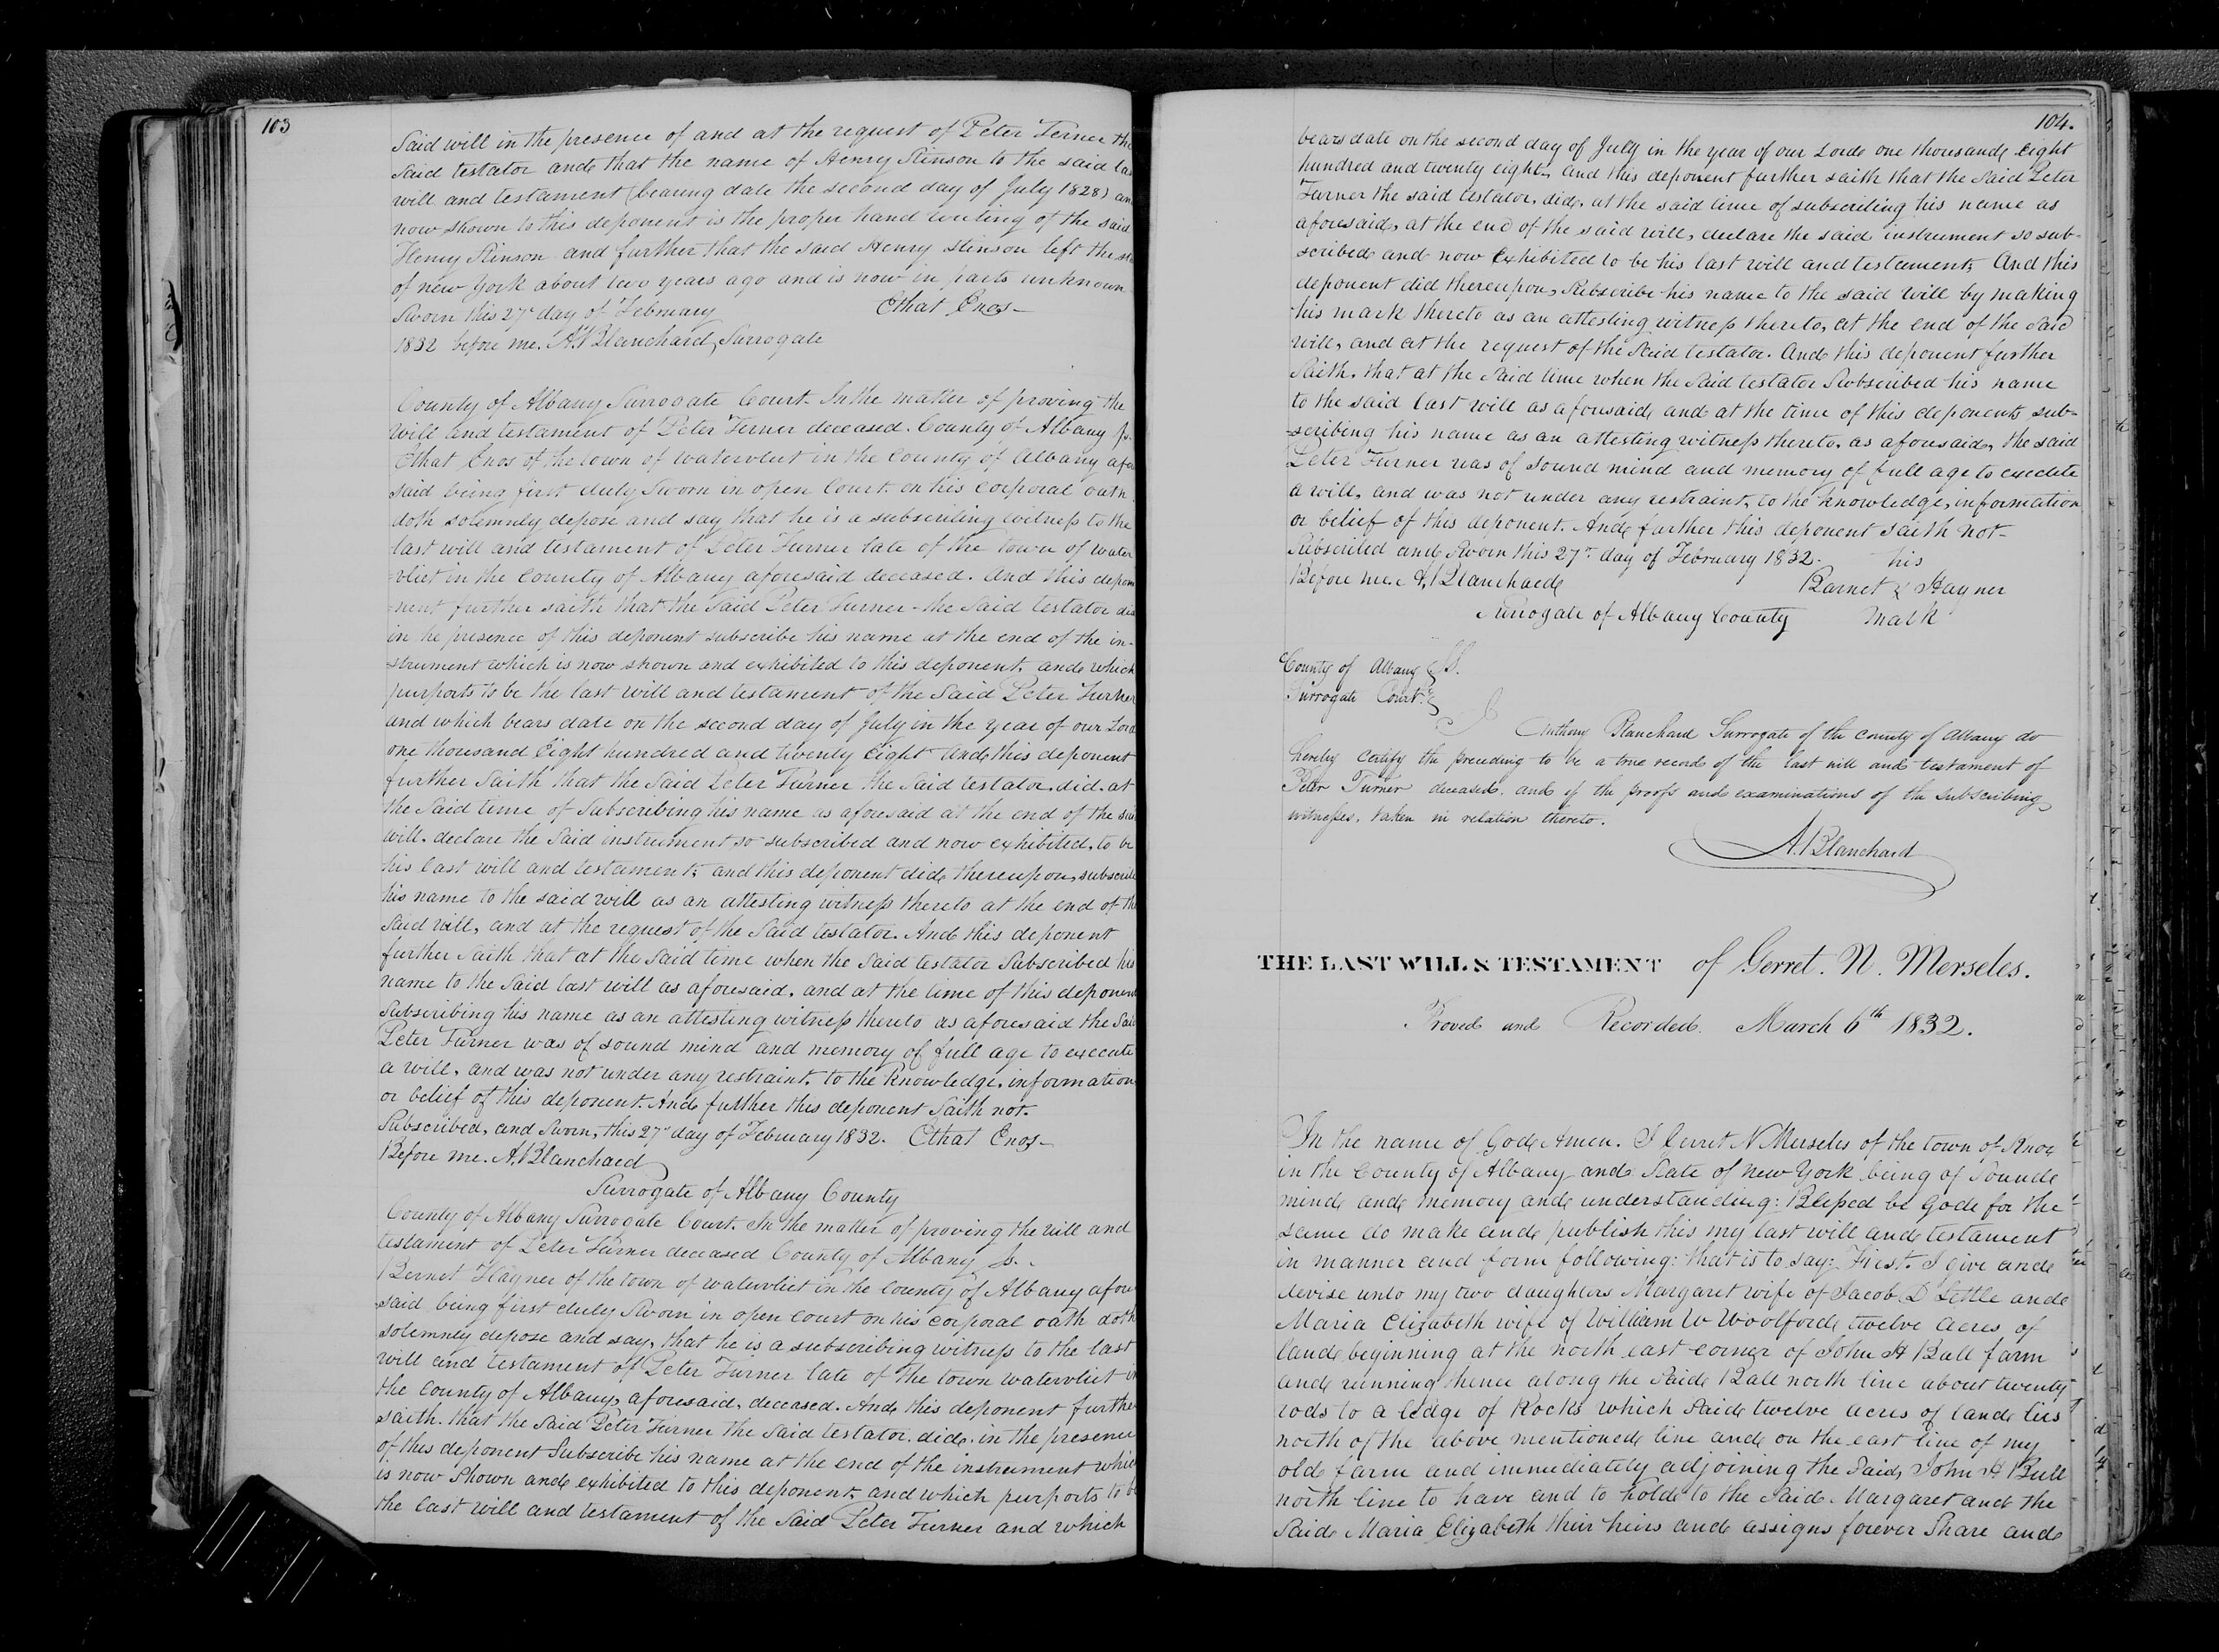 103
Said will in the presence of and at the request of Peter Turner the
Said testator and that the name of Henry Stinson to the said las
will and testament (bearing date the second day of July 1828) an
now shown to this deponent is the proper hand writing of the said
Henry Stinson and further that the said Henry Stinson left the st
of new York about two years ago and is now in parts unknown
Sworn this 27th day of February Ethat Enos
1832 before me. A. Blanchard, Surrogate
County of Albany Surrogate Court. In the matter of proving the
will and testament of Peter Turner deceased. County of Albany ss.
Ethat Enos of the town of watervliet in the County of Albany afore
said being first duly Sworn in open Court. on his corporal oath
doth solemnly depose and say that he is a subscribing witness to the
last will and testament of Peter Turner late of the town of water
vliet in the County of Albany aforesaid deceased. And this depon
=nent further saith that the Said Peter Turner the Said testator did
in he presence of this deponent subscribe his name at the end of the in-
strument which is now shown and exhibited to this deponent, and which
purports to be the last will and testament of the Said Peter Turner
and which bears date on the second day of July in the year of our Lord
one thousand Eight hundred and twenty Eight And this deponent
further Saith that the Said Peter Turner the Said testator, did, at
the Said time of Subscribing his name as aforesaid at the end of the said
will, declare the Said instrument so subscribed and now exhibited, to be
his last will and testament; and this deponent did, thereupon, subscribe
his name to the said will as an attesting witness thereto at the end of the
Said will, and at the request of the Said testator. And this deponent
further Saith that at the Said time when the Said testator Subscribed his
name to the Said last will as aforesaid, and at the time of this deponent
Subscribing his name as an attesting witness thereto as aforesaid the Said
Peter Turner was of sound mind and memory of full age to execute
a will, and was not under any restraint, to the knowledge, information
or belief of this deponent. And further this deponent Saith not.
Subscribed, and Sworn, this 27th day of February 1832. Ethat Enos
Before me. A. Blanchard
Surrogate of Albany County
County of Albany Surrogate Court. In the matter of proving the will and
testament of Peter Turner deceased County of Albany ss.
Bernet Hayner of the town of watervliet in the County of Albany afore
said being first duly Sworn in open court on his corporal oath doth
solemnly depose and say, that he is a subscribing witness to the last
will and testament of Peter Turner late of the town watervliet in
the County of Albany, aforesaid, deceased. And this deponent further
saith. that the Said Peter Turner the Said testator. did. in the presence
of this deponent Subscribe his name at the end of the instrument which
is now Shown and exhibited to this deponent, and which purports to be
the last will and testament of the Said Peter Turner and which
104.
bears date on the second day of July in the year of our Lord one thousand Eight
hundred and twenty eight, and this deponent further saith that the Said Peter
Turner the said testator, did, at the said time of subscribing his name as
aforesaid, at the end of the said will, declare the said instrument so sub-
scribed and now Exhibited to be his last will and testament; And this
deponent did thereupon, Subscribe his name to the said will by making
his mark thereto as an attesting witness thereto, at the end of the Said
will, and at the request of the Said testator. And this deponent further
Saith, that at the Said time when the Said testator Subscribed his name
to the said last will as aforesaid, and at the time of this deponents sub=
=scribing his name as an attesting witness thereto, as aforesaid, the said
Peter Turner was of Sound mind and memory of full age to execute
a will, and was not under any restraint, to the knowledge, information
or belief of this deponent. And further this deponent saith not-
Subscribed and Sworn this 27th day of February 1832. his
Before me. A. Blanchard Barnet x Hayner
Surrogate of Albany County Mark
County of Albany } SS.
Surrogate Court. }
I Anthony Blanchard Surrogate of the county of Albany do
hereby certify the preceding to be a true record of the last will and testament of
Peter Turner deceased, and of the proofs and examinations of the subscribing
witnesses, taken in relation thereto.
A. Blanchard
THE LAST WILL & TESTAMENT of Gerret. N. Merseles.
Proved and Recorded. March 6th 1832.
In the name of God, Amen. I Gerret N Merseles of the town of Knox
in the County of Albany and State of New York being of Sound
mind and memory and understanding: Blessed be God for the
same do make and publish this my last will and testament
in manner and form following: that is to say: First. I give and
devise unto my two daughters Margaret wife of Jacob D Settle and
Maria Elizabeth wife of William W Woolford twelve acres of
land beginning at the north east corner of John H Ball farm
and running thence along the Said Ball north line about twenty
rods to a ledge of Rocks which Said twelve acres of land lies
north of the above mentioned line and on the east line of my
old farm and immediately adjoining the Said, John H Ball
north line to have and to hold to the Said Margaret and the
Said Maria Elizabeth their heirs and assigns forever Share and